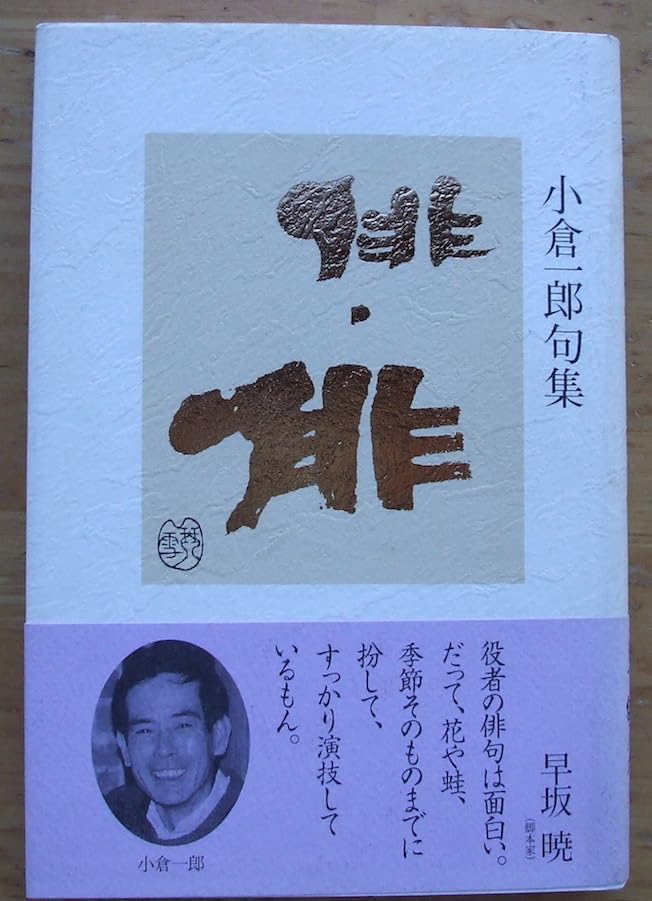 小倉一郎句集
俳・俳
役者の俳句は面白い。
だって、花や蛙、
季節そのものまでに
扮して、
すっかり演技して
いるもん。
早坂 暁
（脚本家）
小倉一郎